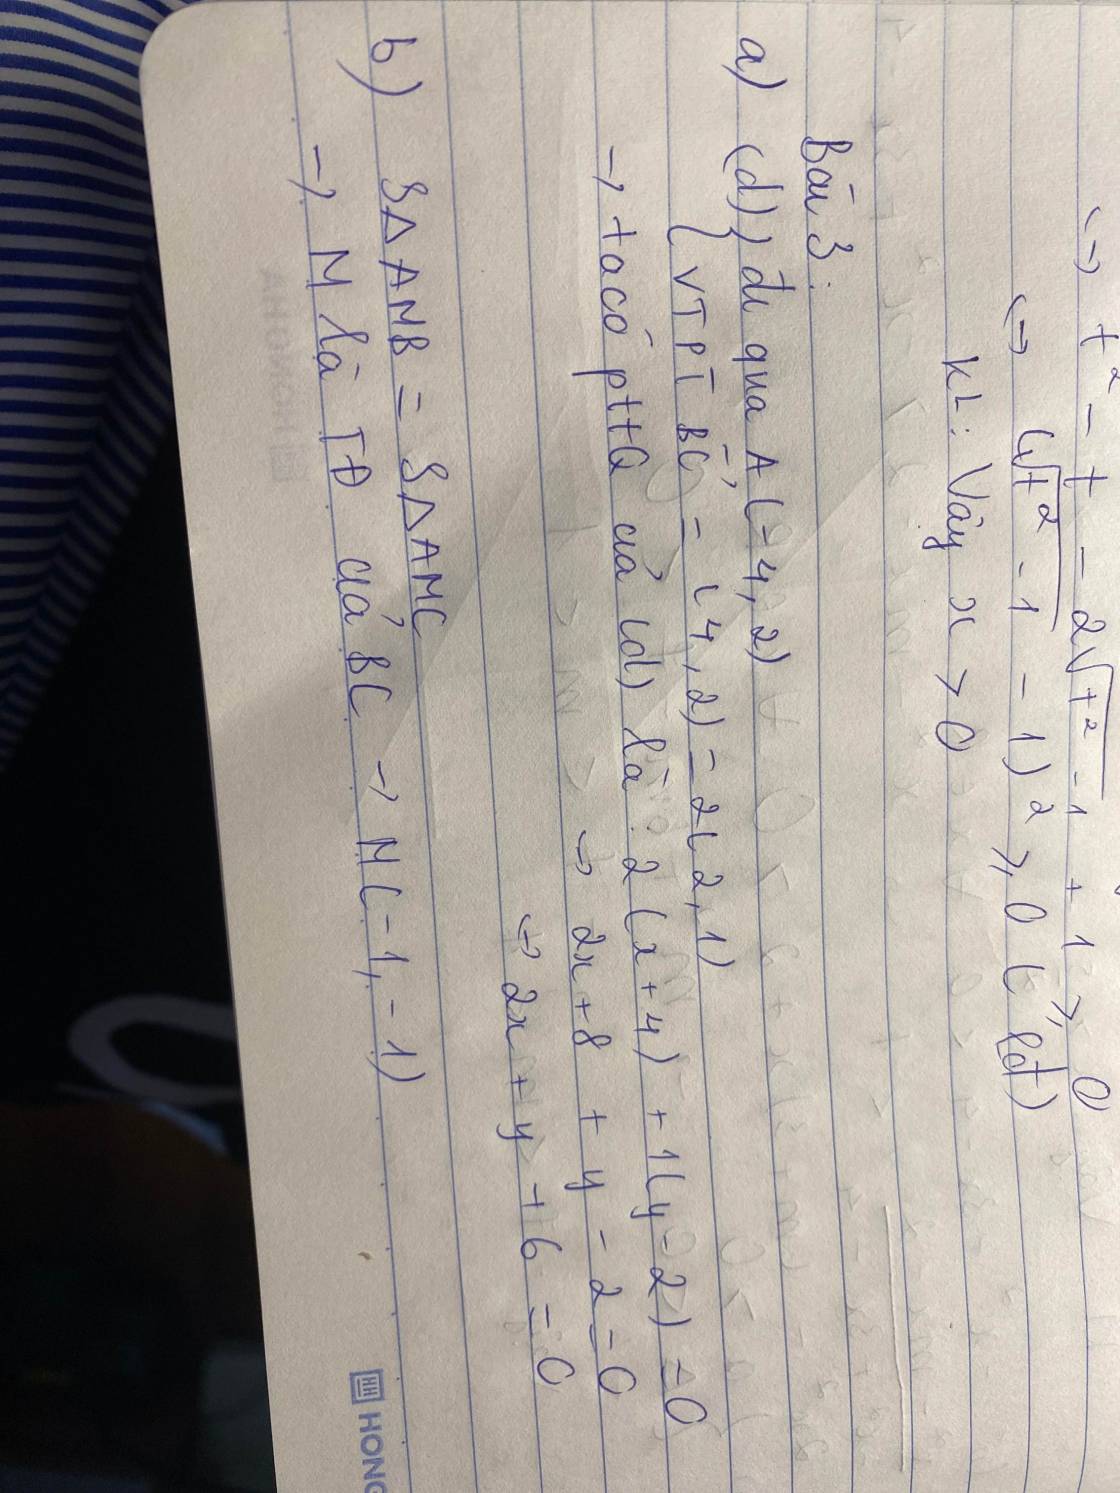 ↔ t² - t - 2√t²-1 + 1 ≥ 0
↔ (√t²-1 - 1)² ≥ 0 (lđ)
KL: Vậy x > 0
Bài 3:
a) (d) { đi qua A(-4,2)
VTPT BC = (4,2) = 2(2,1)
→ ta có ptTQ của (d) là: 2(x+4) + 1(y-2) = 0
→ 2x+8 + y - 2 = 0
↔ 2x + y + 6 = 0
b) SΔAMB = SΔAMC
→ M là TĐ của BC → M(-1,-1)
HONG